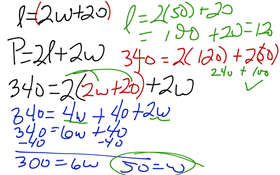 l=(2w+20)
P=2l+2w
340=2(2w+20)+2w
340=4w+40+2w
340=6w+40
-40 -40
300=6w 50=w
l=2(50)+20
=100+20=120
340=2(120)+2(50)
240+100
✓